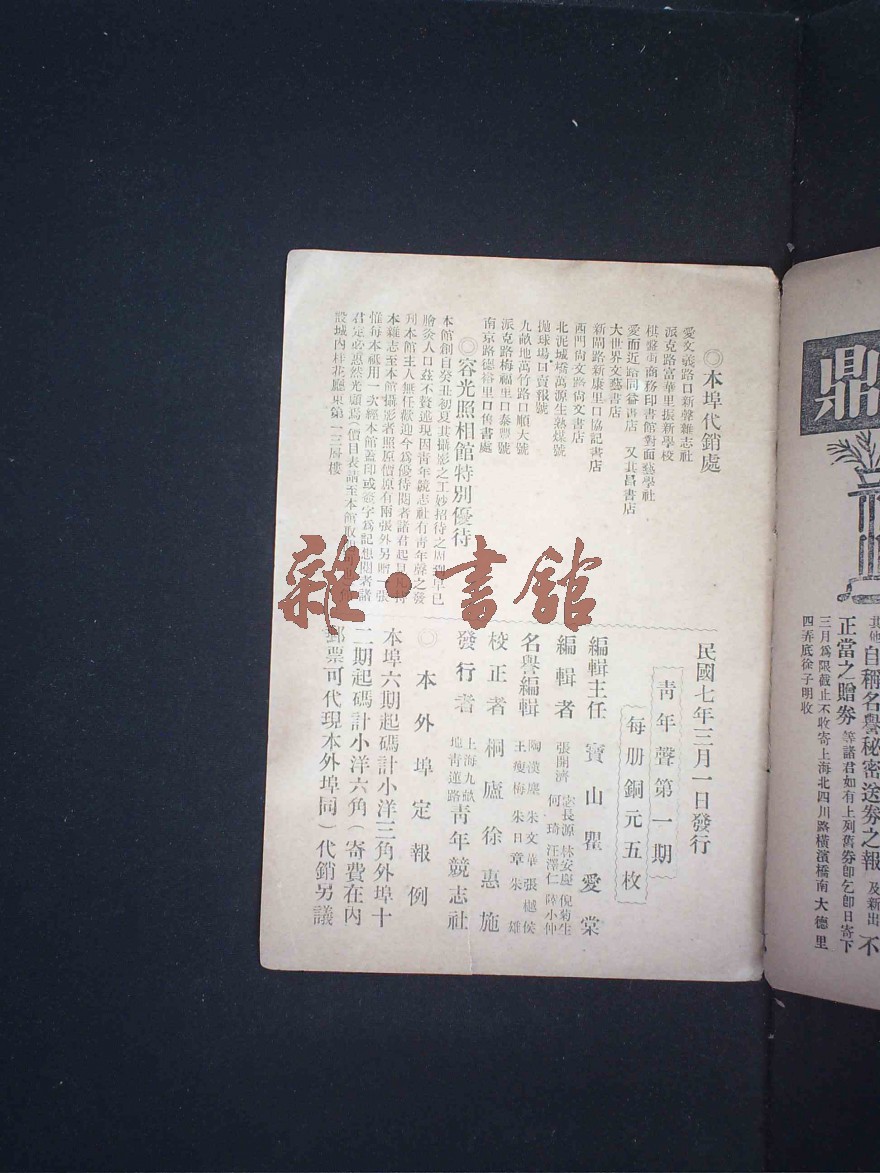 ◎本埠代銷處
愛文義路口新聲雜志社
派克路富華里振新學校
棋盤街商務印書館對面藝學社
愛而近路同益書店 又其昌書店
大世界文藝書店
新閘路新康里口協記書店
西門尙文路尙文書店
北泥城橋萬源生熟煤號
拋球場口賣報號
九畝地萬竹路口順大號
派克路梅福里口泰豐號
南京路德裕里口侑書處
◎容光照相館特別優待
本館創自癸丑初夏其攝影之工妙招待之周到早已
膾炙人口茲不贅述現因靑年競志社有靑年聲之發
刊本館主人無任歡迎今爲優待閱者諸君起見凡持
本雜志至本館攝影者照原價原有兩張外另贈一張
惟每本祗用一次經本館蓋印或簽字爲記想閱者諸
君定必惠然光顧焉(價目表請至本館取
設城內桂花廳東第一三層樓
民國七年三月一日發行
靑年聲第一期
每册銅元五枚
編輯主任 寶山瞿愛棠
編輯者 張開濟 長源 林安慶 倪菊生
何琦 汪澤仁 陸小仲
名譽編輯 陶漢塵 朱文華 張樾侯
王瘦梅 朱日章 朱雄
校正者 桐廬徐惠施
發行者 上海九畝地靑蓮路 靑年競志社
◎本外埠定報例
本埠六期起碼計小洋三角外埠十
二期起碼計小洋六角(寄費在內
郵票可代現本外埠同)代銷另議
雜·書館
鼎
其他自稱名譽秘密送券之報 及新出 不
正當之贈券 等諸君如有上列舊券卽乞卽日寄下
三月爲限截止不收寄上海北四川路橫濱橋南大德里
四弄底徐子明收